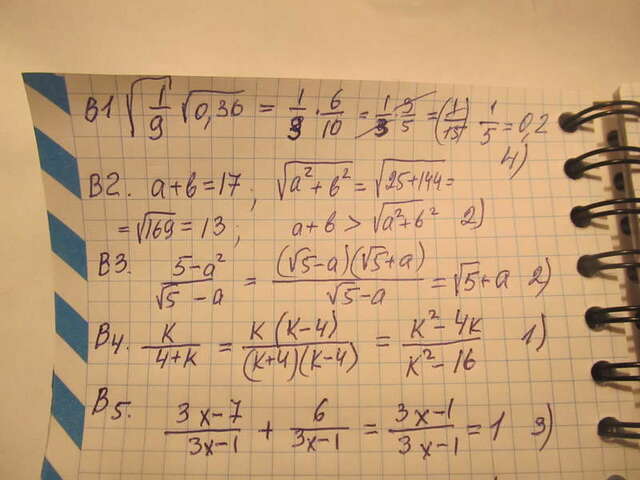 В1 √(1/9) √(0,36) = 1/3 · 6/10 = 1/3 · 3/5 = (1/15) 1/5 = 0,2
4)
В2. a+b=17 ; √(a²+b²) = √(25+144) =
= √169 = 13 ; a+b > √(a²+b²) 2)
В3. (5-a²)/(√5-a) = ((√5-a)(√5+a))/(√5-a) = √5+a 2)
В4. K/(4+K) = (K(K-4))/((K+4)(K-4)) = (K²-4K)/(K²-16) 1)
В5. (3x-7)/(3x-1) + 6/(3x-1) = (3x-1)/(3x-1) = 1 3)